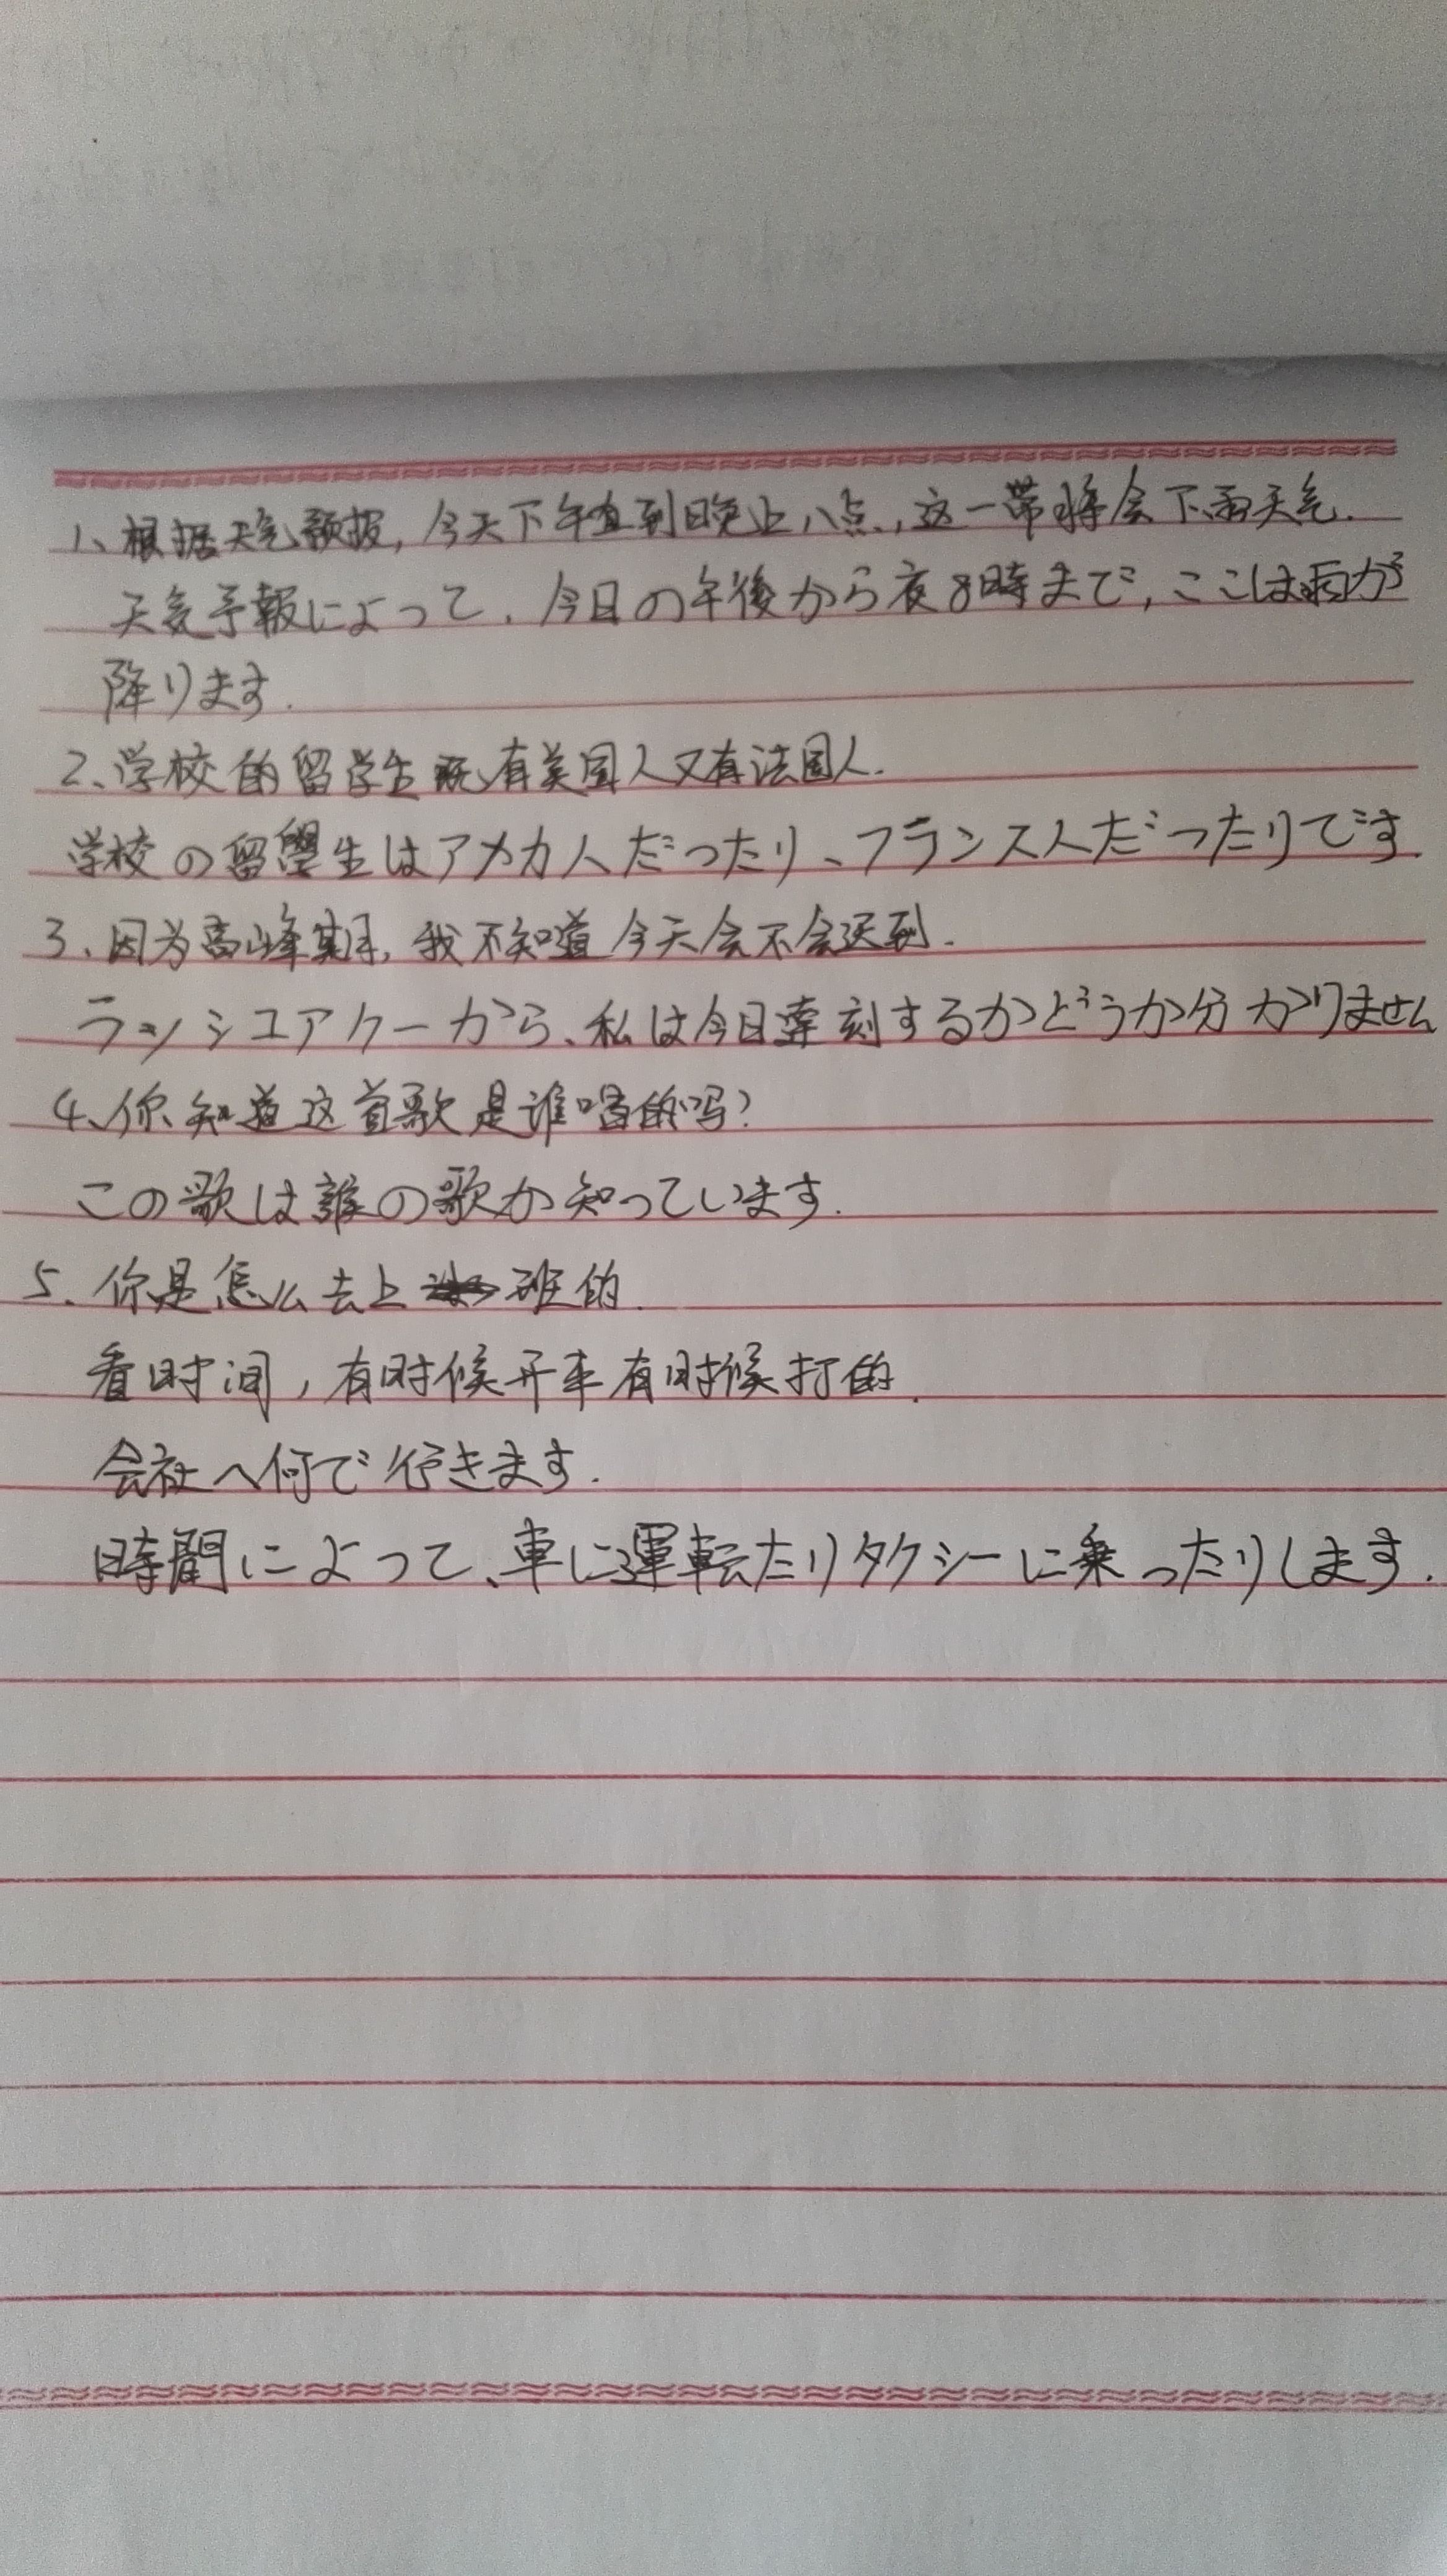 1、根据天气预报,今天下午直到晚上八点,这一带将会下雨天气.
天気予報によって.今日の午後から夜8時まで,ここは雨が
降ります.
2、学校的留学生既有美国人又有法国人.
学校の留學生はアメカ人だったり、フランス人だったりです.
3、因为高峰期,我不知道今天会不会迟到.
ラッシュアケーから、私は今日遅刻するかどうか分かりません
4、你知道这首歌是谁唱的吗?
この歌は誰の歌か知っています.
5.你是怎么去上班的.
看时间,有时候开车有时候打的.
会社へ何で行きます.
時間によって、車に運転たりタクシーに乗ったりします.